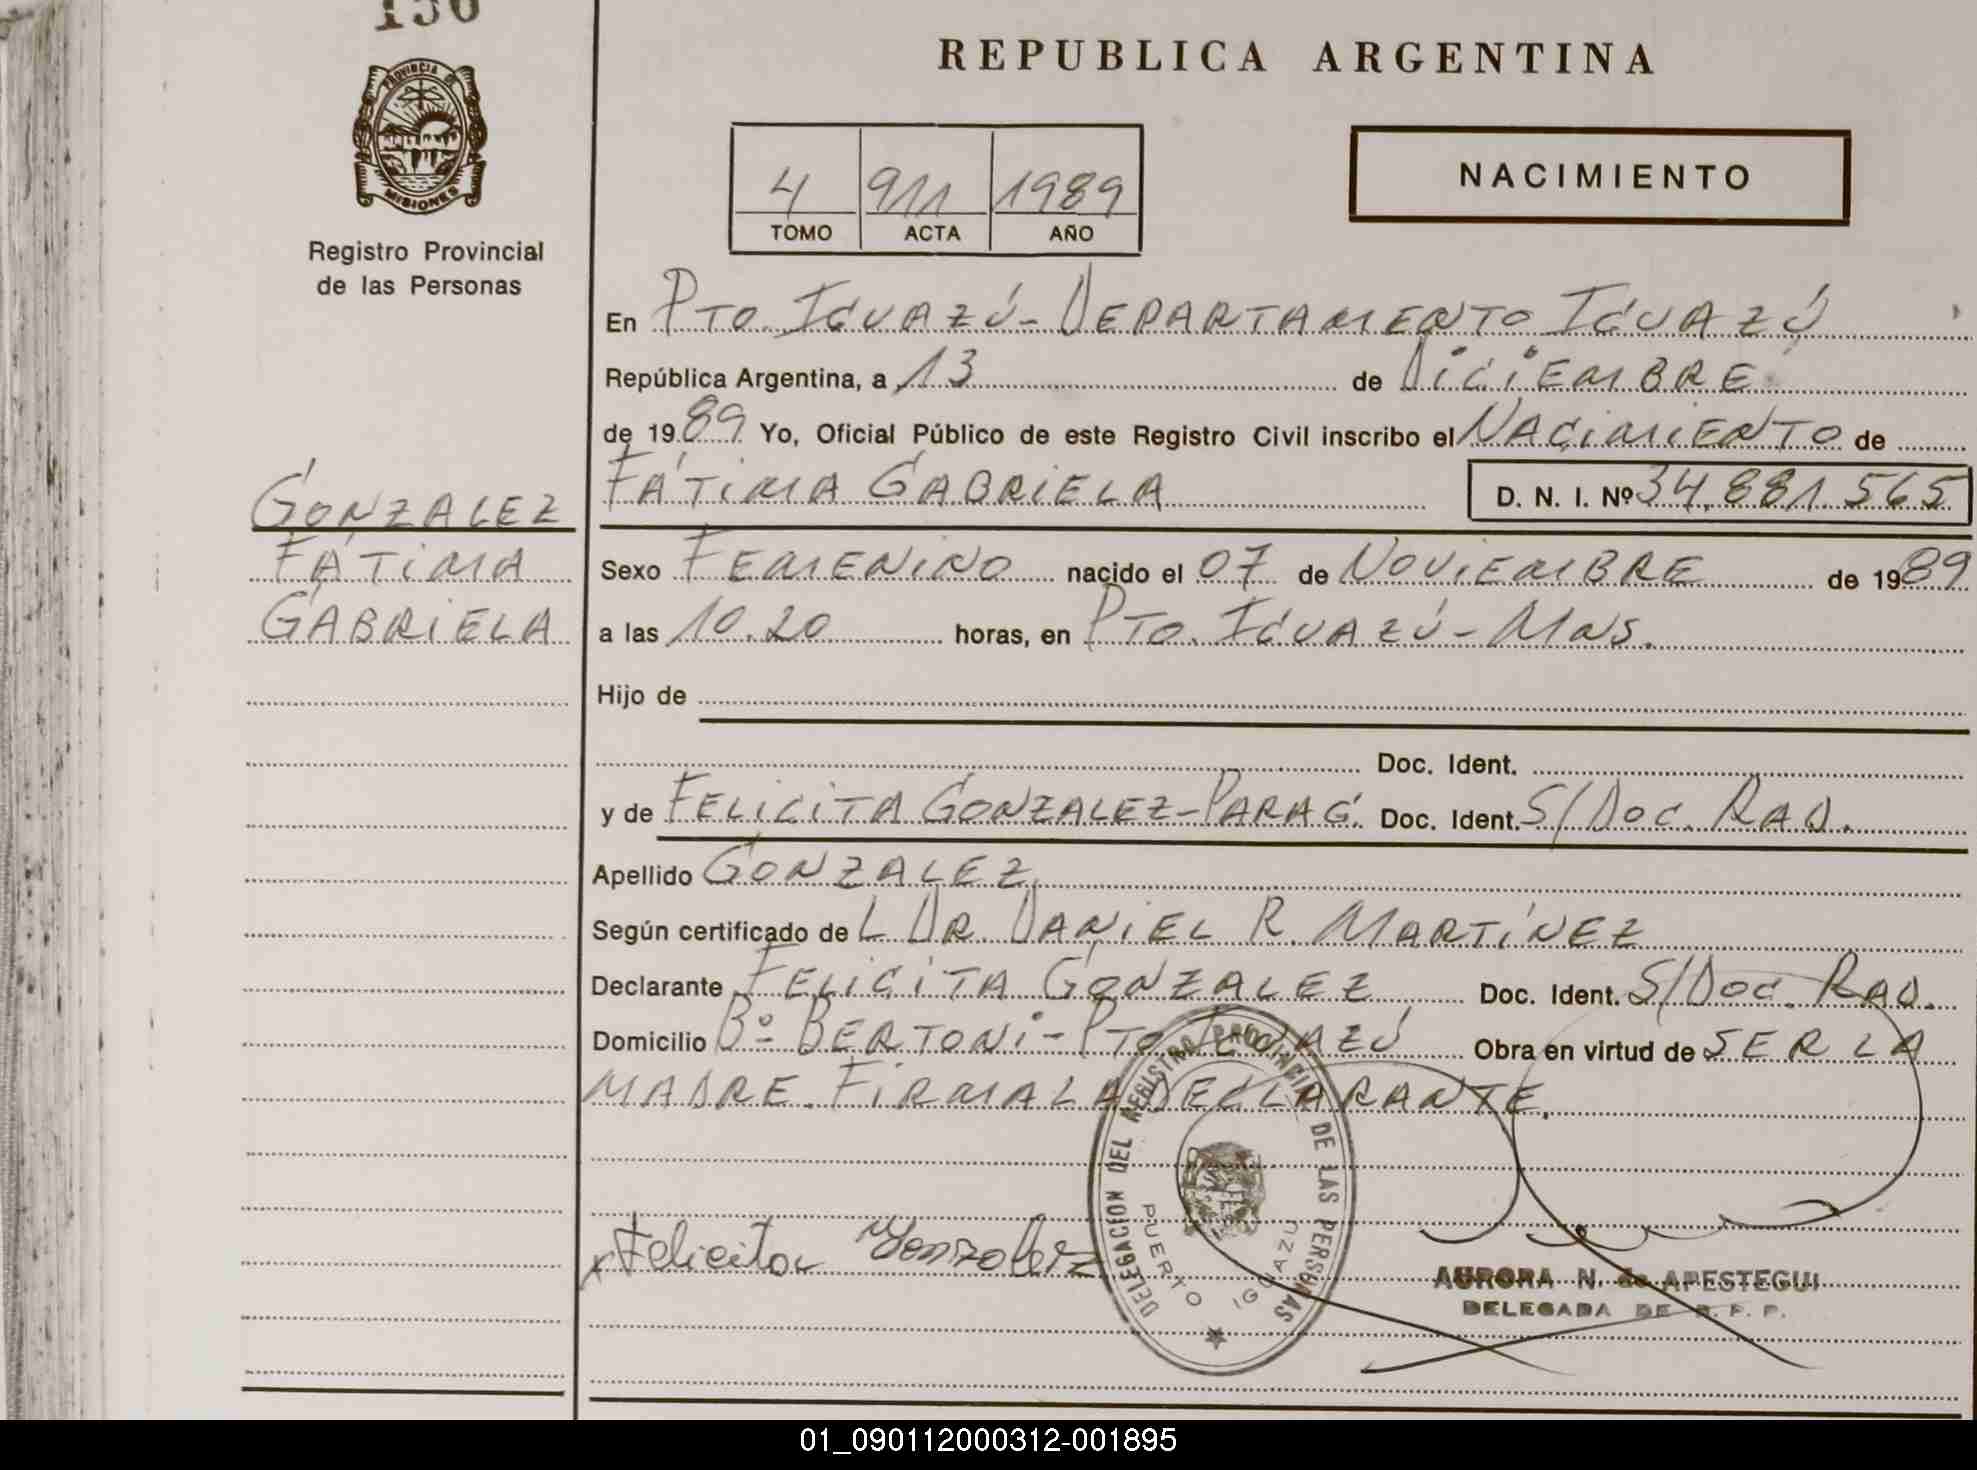 156
REPUBLICA ARGENTINA
PROVINCIA DE
MISIONES
Registro Provincial
de las Personas
4 911 1989
TOMO ACTA AÑO
NACIMIENTO
En PTO. IGUAZÚ - DEPARTAMENTO IGUAZÚ
República Argentina, a 13 de DICIEMBRE
de 1989 Yo, Oficial Público de este Registro Civil inscribo el NACIMIENTO de
FÁTIMA GABRIELA D. N. I. Nº 34.881.565
GONZALEZ
FÁTIMA
GABRIELA
Sexo FEMENINO nacido el 07 de NOVIEMBRE de 1989
a las 10.20 horas, en PTO. IGUAZÚ - MNS.
Hijo de
Doc. Ident.
y de FELICITA GONZALEZ - PARAG. Doc. Ident. S/DOC. RAD.
Apellido GONZALEZ
Según certificado de L DR. DANIEL R. MARTÍNEZ
Declarante FELICITA GONZALEZ Doc. Ident. S/DOC. RAD.
Domicilio Bº BERTONI - PTO. IGUAZÚ Obra en virtud de SER LA
MADRE. FIRMA LA DECLARANTE.
x Felicita Gonzalez
DELEGACION DEL REGISTRO PROVINCIAL DE LAS PERSONAS
PUERTO IGUAZU
AURORA N. de APESTEGUI
DELEGADA DE R. P. P.
01_090112000312-001895